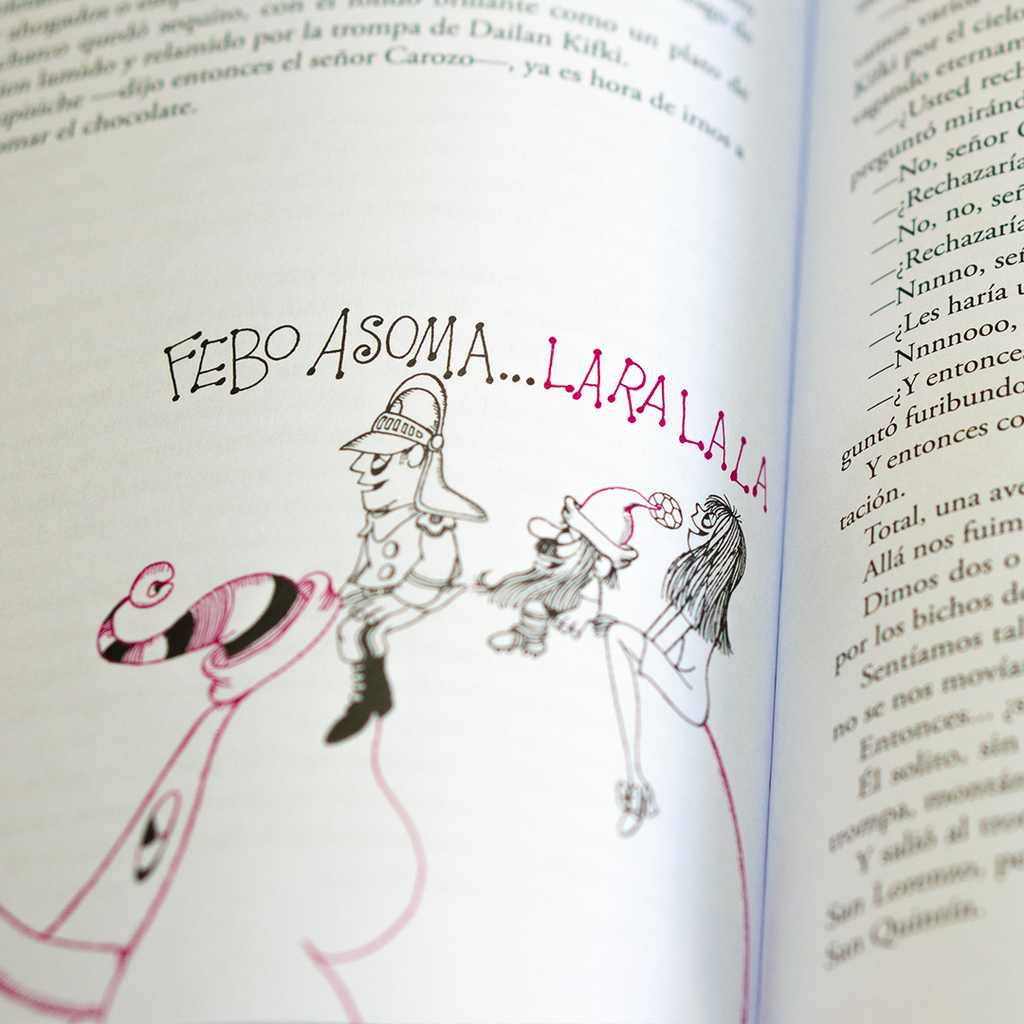 charco quedó sequito, con el fondo brillante como un plato de
lamido y relamido por la trompa de Dailan Kifki.
—dijo entonces el señor Carozo—, ya es hora de irnos a
tomar el chocolate.
FEBO ASOMA... LARALALALA
Kifki por el cielo
vagando eternam
—¿Usted rech
preguntó miránd
—No, señor C
—¿Rechazaría
—No, no, señ
—¿Rechazaría
—Nnnno, señ
—¿Les haría u
—Nnnnooo,
—¿Y entonces
guntó furibundo
Y entonces co
tación.
Total, una ave
Allá nos fuim
Dimos dos o
por los bichos de
Sentíamos tal
no se nos movía
Entonces... ¿s
Él solito, sin
trompa, montán
Y salió al trot
San Lorenzo, pe
San Quintín.